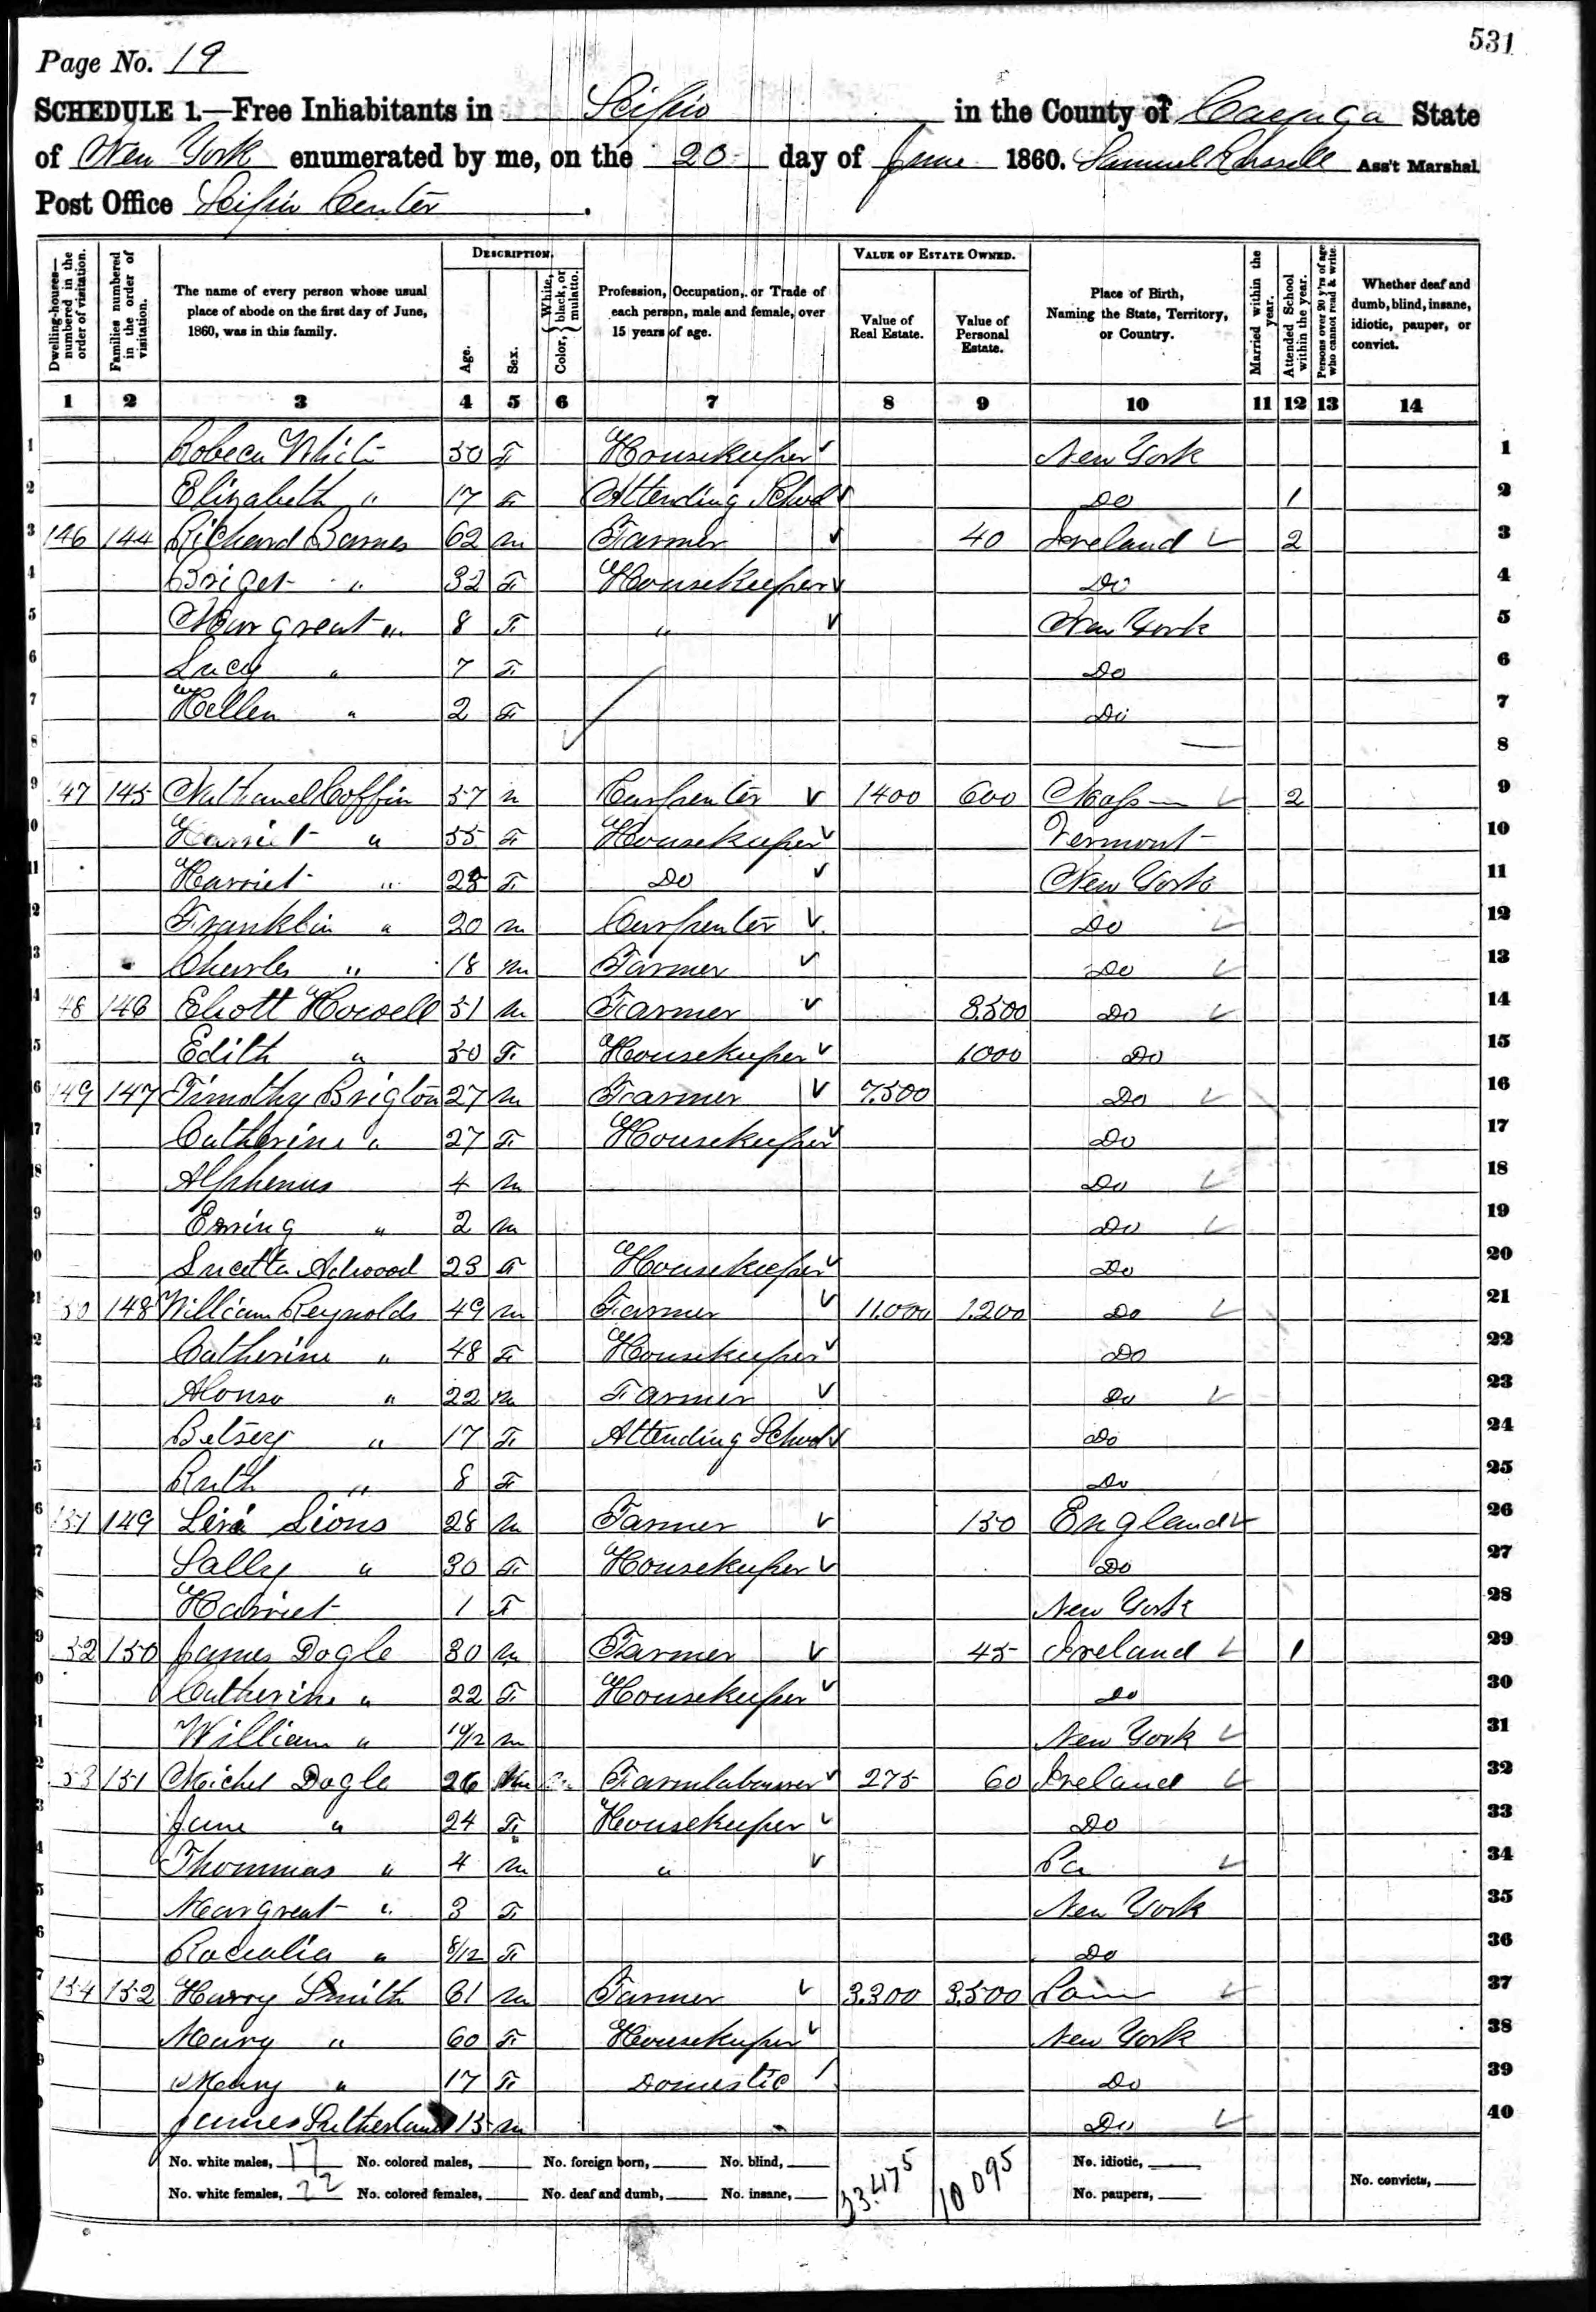 531
Page No. 19
SCHEDULE 1.—Free Inhabitants in Scipio in the County of Cayuga State
of New York enumerated by me, on the 20 day of June 1860. Samuel Ass't Marshal.
Post Office Scipio Center.
DESCRIPTION. VALUE OF ESTATE OWNED.
Dwelling-houses—numbered in the order of visitation. Families numbered in the order of visitation. The name of every person whose usual place of abode on the first day of June, 1860, was in this family. Age. Sex. Color, { White, black, or mulatto. Profession, Occupation, or Trade of each person, male and female, over 15 years of age. Value of Real Estate. Value of Personal Estate. Place of Birth, Naming the State, Territory, or Country. Married within the year. Attended School within the year. Persons over 20 y'rs of age who cannot read & write. Whether deaf and dumb, blind, insane, idiotic, pauper, or convict.
1 2 3 4 5 6 7 8 9 10 11 12 13 14
1 Robeca White 50 F Housekeeper New York 1
2 Elizabeth " 17 F Attending School Do 1 2
3 146 144 Richard Barnes 62 m Farmer 40 Ireland 2 3
4 Briget " 32 F Housekeeper Do 4
5 Margreat " 8 F " New York 5
6 Lucy " 7 F Do 6
7 Hellen " 2 F Do 7
8 8
9 147 145 Nathanel Coffin 57 m Carpenter 1400 600 Mass 2 9
10 Harriet " 55 F Housekeeper Vermont 10
11 Harriet " 25 F Do New York 11
12 Franklin " 20 m Carpenter Do 12
13 Charles " 18 m Farmer Do 13
14 148 146 Eliott Howell 51 m Farmer 3.500 Do 14
15 Edith " 50 F Housekeeper 1000 Do 15
16 149 147 Timothy Brigton 27 m Farmer 7.500 Do 16
17 Catherine " 27 F Housekeeper Do 17
18 Alphenus 4 m Do 18
19 Erving " 2 m Do 19
20 Lucetta Adwood 23 F Housekeeper Do 20
21 150 148 William Reynolds 49 m Farmer 11.000 1.200 Do 21
22 Catherine " 48 F Housekeeper Do 22
23 Alonso " 22 m Farmer Do 23
24 Betsey " 17 F Attending School Do 24
25 Ruth " 8 F Do 25
26 151 149 Levi Lions 28 m Farmer 150 England 26
27 Sally " 30 F Housekeeper Do 27
28 Harriet 1 F New York 28
29 152 150 James Dogle 30 m Farmer 45 Ireland 1 29
30 Catherine " 22 F Housekeeper do 30
31 William " 10/12 m New York 31
32 153 151 Michel Dogle 26 m Farmlabourer 275 60 Ireland 32
33 Jane " 24 F Housekeeper Do 33
34 Thommas " 4 m " Pa 34
35 Margreat " 3 F New York 35
36 " 8/12 F Do 36
37 154 152 Harry Smith 61 m Farmer 3.300 3.500 37
38 Mary " 60 F Housekeeper New York 38
39 Mary " 17 F Domestic Do 39
40 James Sutherland 15 m Do 40
No. white males, 17 No. colored males, No. foreign born, No. blind, 33.475 10095 No. idiotic,
No. white females, 22 No. colored females, No. deaf and dumb, No. insane, No. paupers, No. convicts,